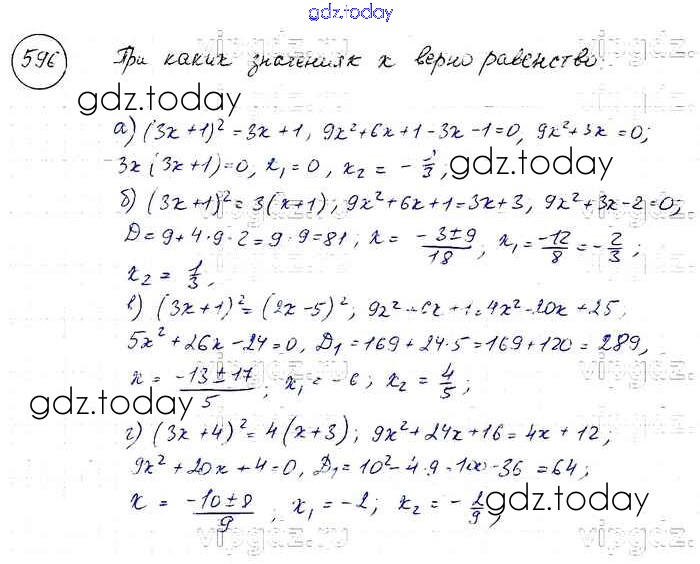 gdz.today
596 При каких значениях x верно равенство:
gdz.today
а) (3x+1)² = 3x+1, 9x²+6x+1-3x-1=0, 9x²+3x=0;
3x(3x+1)=0, x₁=0, x₂ = -1/3;
gdz.today
б) (3x+1)² = 3(x+1); 9x²+6x+1=3x+3, 9x²+3x-2=0;
D=9+4·9·2=9·9=81; x = (-3±9)/18; x₁ = -12/8 = -2/3;
x₂ = 1/3;
в) (3x+1)² = (2x-5)²; 9x²+6x+1=4x²-20x+25;
5x²+26x-24=0, D₁=169+24·5=169+120=289,
x = (-13±17)/5; x₁=-6; x₂ = 4/5;
gdz.today
г) (3x+4)² = 4(x+3); 9x²+24x+16=4x+12;
9x²+20x+4=0, D₁=10²-4·9=100-36=64;
x = (-10±8)/9, x₁=-2; x₂ = -2/9;
gdz.today